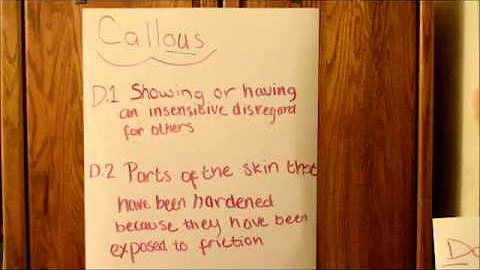 Callous
D.1 Showing or having
an insensitive disregard
for others
D.2 Parts of the skin that
have been hardened
because they have been
exposed to friction